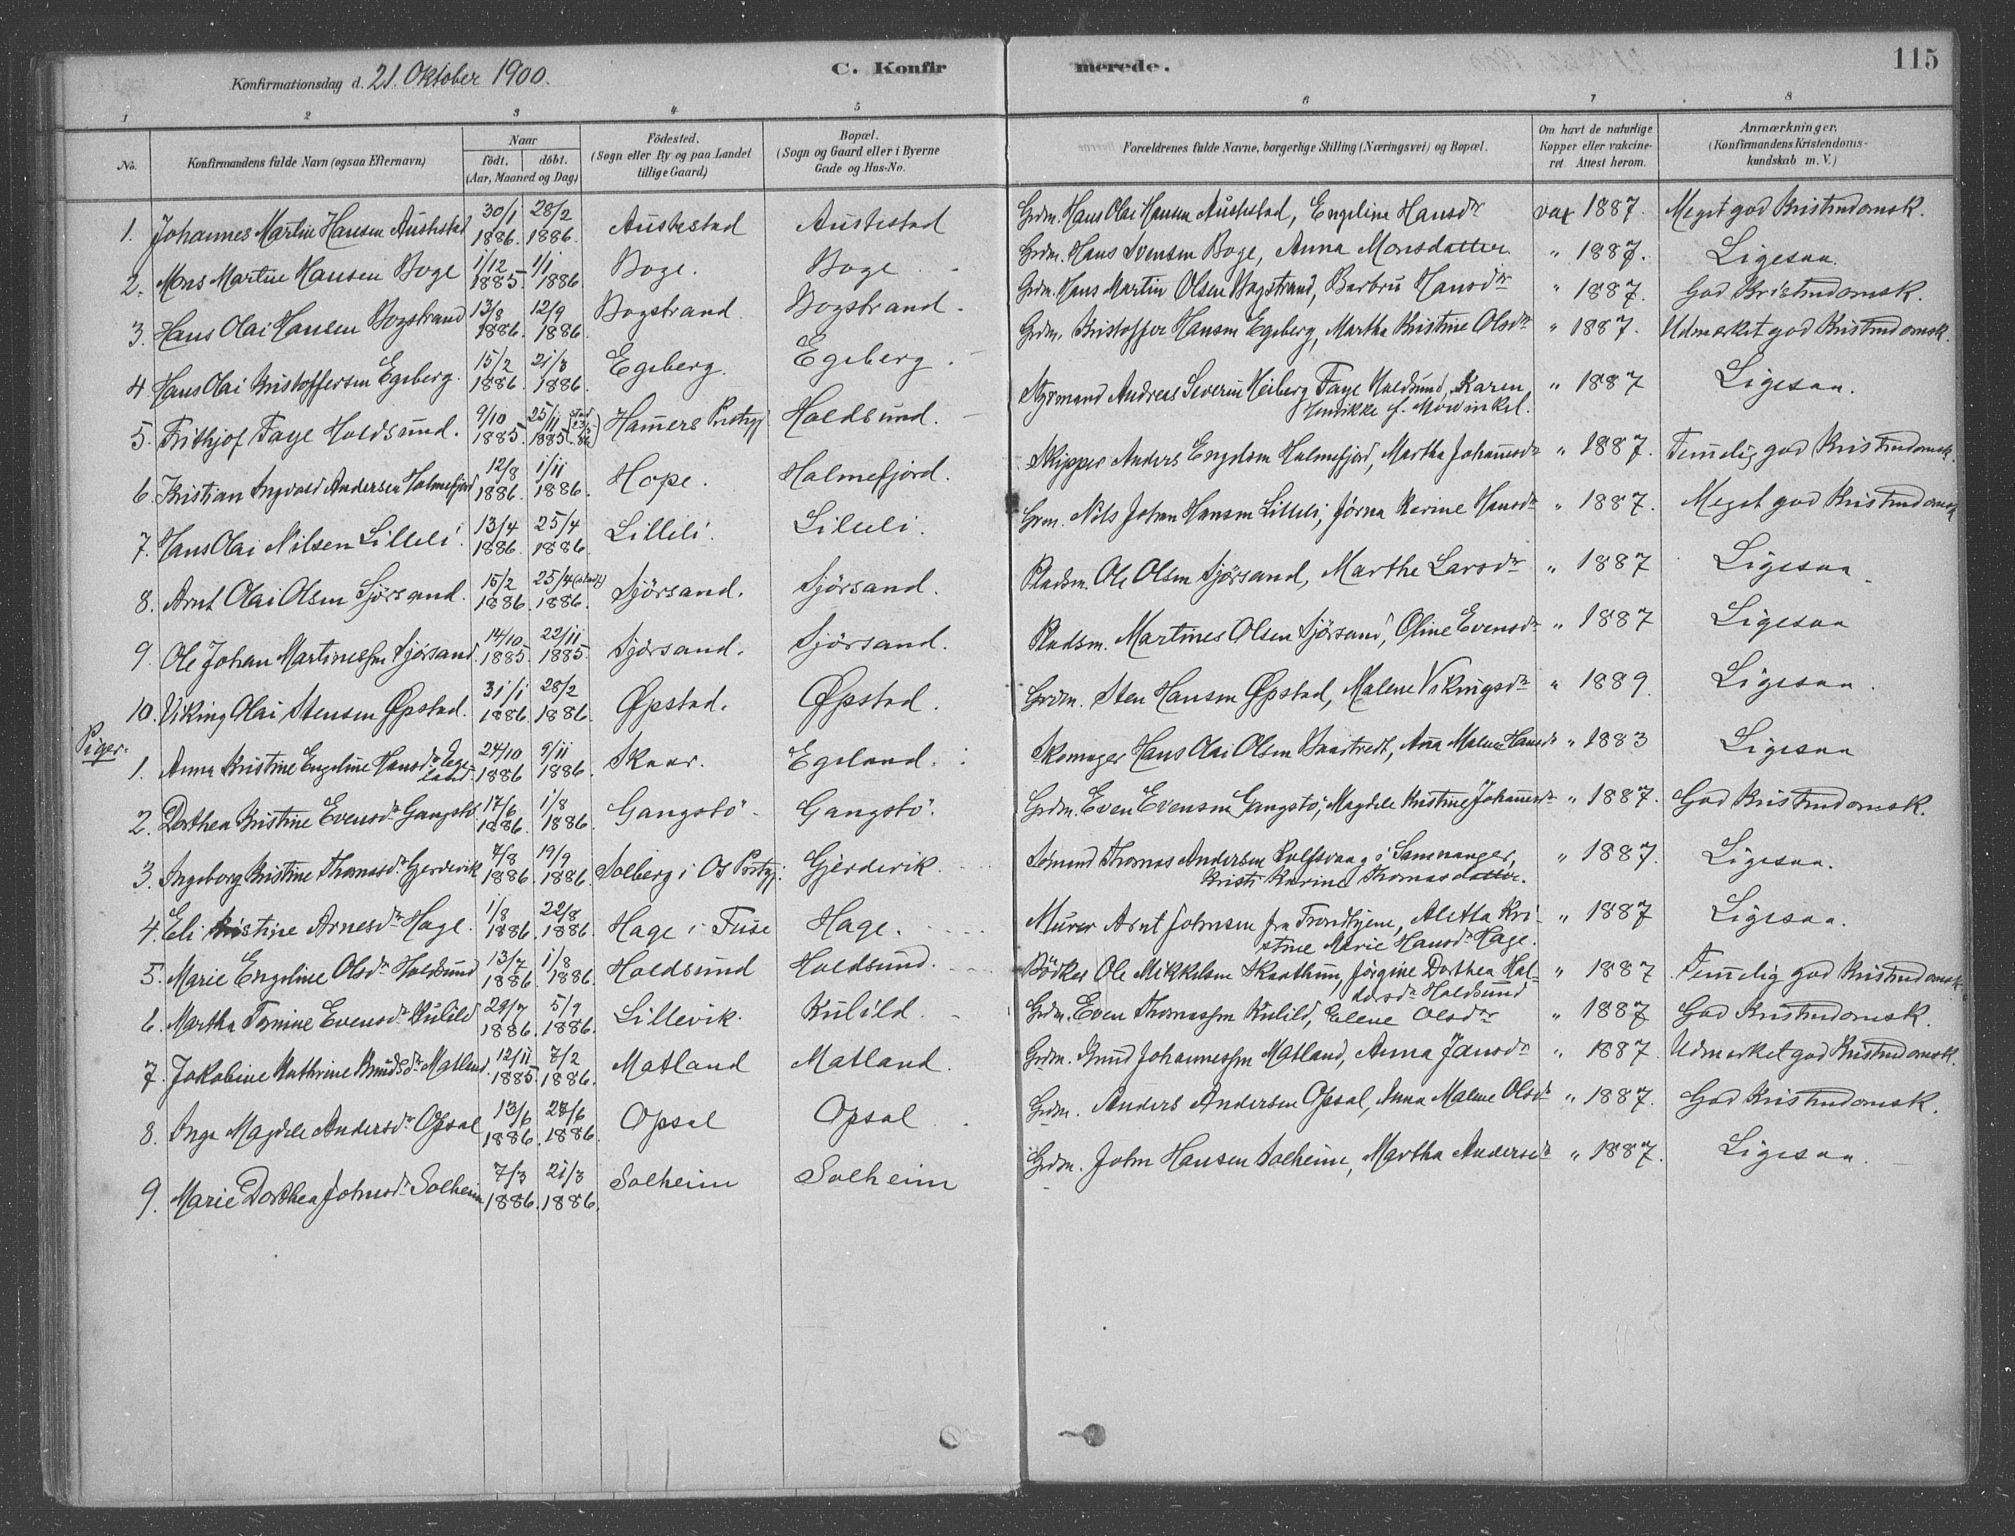 Konfirmationsdag d. 21. Oktober 1900.
C. Konfirmerede.
115
1 2 3 4 5 6 7 8
No.
Konfirmandens fulde Navn (ogsaa Efternavn)
Naar
født. døbt.
(Aar, Maaned og Dag)
Fødested.
(Sogn eller By og paa Landet
tillige Gaard)
Bopæl.
(Sogn og Gaard eller i Byerne
Gade og Hus-No.
Forældrenes fulde Navne, borgerlige Stilling (Næringsvei) og Bopæl.
Om havt de naturlige
Kopper eller vakcine-
ret. Attest herom.
Anmærkninger.
(Konfirmandens Kristendoms-
kundskab m. V.)
1. Johannes Martin Hansen Austestad 30/1 1886. 28/2 1886. Austestad Austestad Grdm. Hans Olai Hansen Austestad, Engeline Hansdr vax 1887. Meget god Kristendomsk.
2. Mons Martin Hansen Boge 1/12 1885. 1/1 1886 Boge. Boge Grdm. Hans Svensen Boge, Anna Monsdatter " 1887. Ligesaa.
3. Hans Olai Hansen Bogstrand 13/8 1886. 12/9 1886. Bogstrand. Bogstrand. Grdm. Hans Martin Olsen Bogstrand, Barbru Hansdr " 1887. God Kristendomsk.
4 Hans Olai Kristoffersen Egeberg. 15/2 1886. 21/3 1886. Egeberg. Egeberg. Grdm. Kristoffer Hansen Egeberg, Martha Kristine Olsdr " 1887. Udmerket god Kristendomsk.
5. Frithjof Faye Holdsund. 9/10 1885. 25/11 1885. Hamers Prstgj Holdsund. Nygmand Andreas Severin Heiberg Faye Holdsund, Karen
Henrikke f. Mowinkel. " 1887 Ligesaa.
6. Kristian Ingvald Andersen Holmefjord 12/8 1886. 1/11 1886. Hope. Holmefjord. Skipper Anders Engelsen Holmefjord, Martha Johannesdr " 1887. Temelig god Kristendomsk.
7. Hans Olai Nilsen Lilleli. 13/4 1886. 25/4 1886. Lilleli. Lilleli. Grm. Nils Johan Hansen Lilleli, Jørna Karine Hansdr " 1887. Meget god Kristendomsk
8. Arnt Olai Olsen Sjørsand. 15/2 1886. 25/4 1886. Sjørsand. Sjørsand. Pladsm. Ole Olsen Sjørsand, Marthe Larsdr " 1887 Ligesaa
9. Ole Johan Martinessen Sjørsand 14/10 1885. 22/11 1885. Sjørsand. Sjørsand. Pladsm. Martines Olsen Sjørsand, Oline Evensdr " 1887 Ligesaa
10. Viking Olai Stensen Øpstad. 31/1 1886. 28/2 1886. Øpstad. Øpstad. Grdm. Sten Hansen Øpstad, Malene Vikingsdr " 1889. Ligesaa.
Piger.
1. Anna Kristine Engeline Hansdr Ege-
land 24/10 1886 9/11 1886. Skaar. Egeland. Skomager Hans Olai Olsen Baartvedt, Ana Malene Hansdr " 1883 Ligesaa
2. Dorthea Kristine Evensdr Gangstø 17/6 1886. 1/8 1886. Gangstø. Gangstø. Grdm. Even Evensen Gangstø, Magdele Kristine Johannesdr " 1887. God Kristendomsk.
3. Ingeborg Kristine Thomasdr Gjerdevik 7/8 1886. 19/9 1886. Solberg i Os Prstgj. Gjerdevik. Sømand Thomas Andersen Rolfsvaag i Samnanger,
Kristi Karine Thomasdatter. " 1887. Ligesaa.
4. Eli Kristine Arnesdr Hage. 1/8 1886. 22/8 1886. Hage i Fuse Hage. Murer Arnt Johnsen fra Trondhjem, Aletta Kri-
stine Marie Hansdr Hage. " 1887 Ligesaa.
5. Marie Engeline Olsdr Holdsund 13/7 1886 1/8 1886. Holdsund Holdsund. Bødker Ole Mikkelsen Skaathun, Jørgine Dorthea Hal-
dorsdr Holdsund " 1887 Temelig god Kristendomsk.
6. Martha Tomine Evensdr Kulild 29/7 1886. 5/9 1886. Lillevik. Kulild. Grdm. Even Thomassen Kulild, Elene Olsdr " 1887 God Kristendomsk.
7. Jakobine Kathrine Knudsdr Matland. 12/11 1885. 7/2 1886. Matland Matland. Grdm. Knud Johannessen Matland, Anna Jansdr " 1887. Udmerket god Kristendomsk.
8. Inga Magdele Andersdr Opsal 13/6 1886. 28/6 1886. Opsal Opsal Grdm. Anders Andersen Opsal, Anna Malene Olsdr " 1887. God Kristendomsk.
9. Marie Dorthea Johnsdr Solheim 7/3 1886. 21/3 1886. Solheim Solheim Grdm. John Hansen Solheim, Martha Andersdr " 1887. Ligesaa.